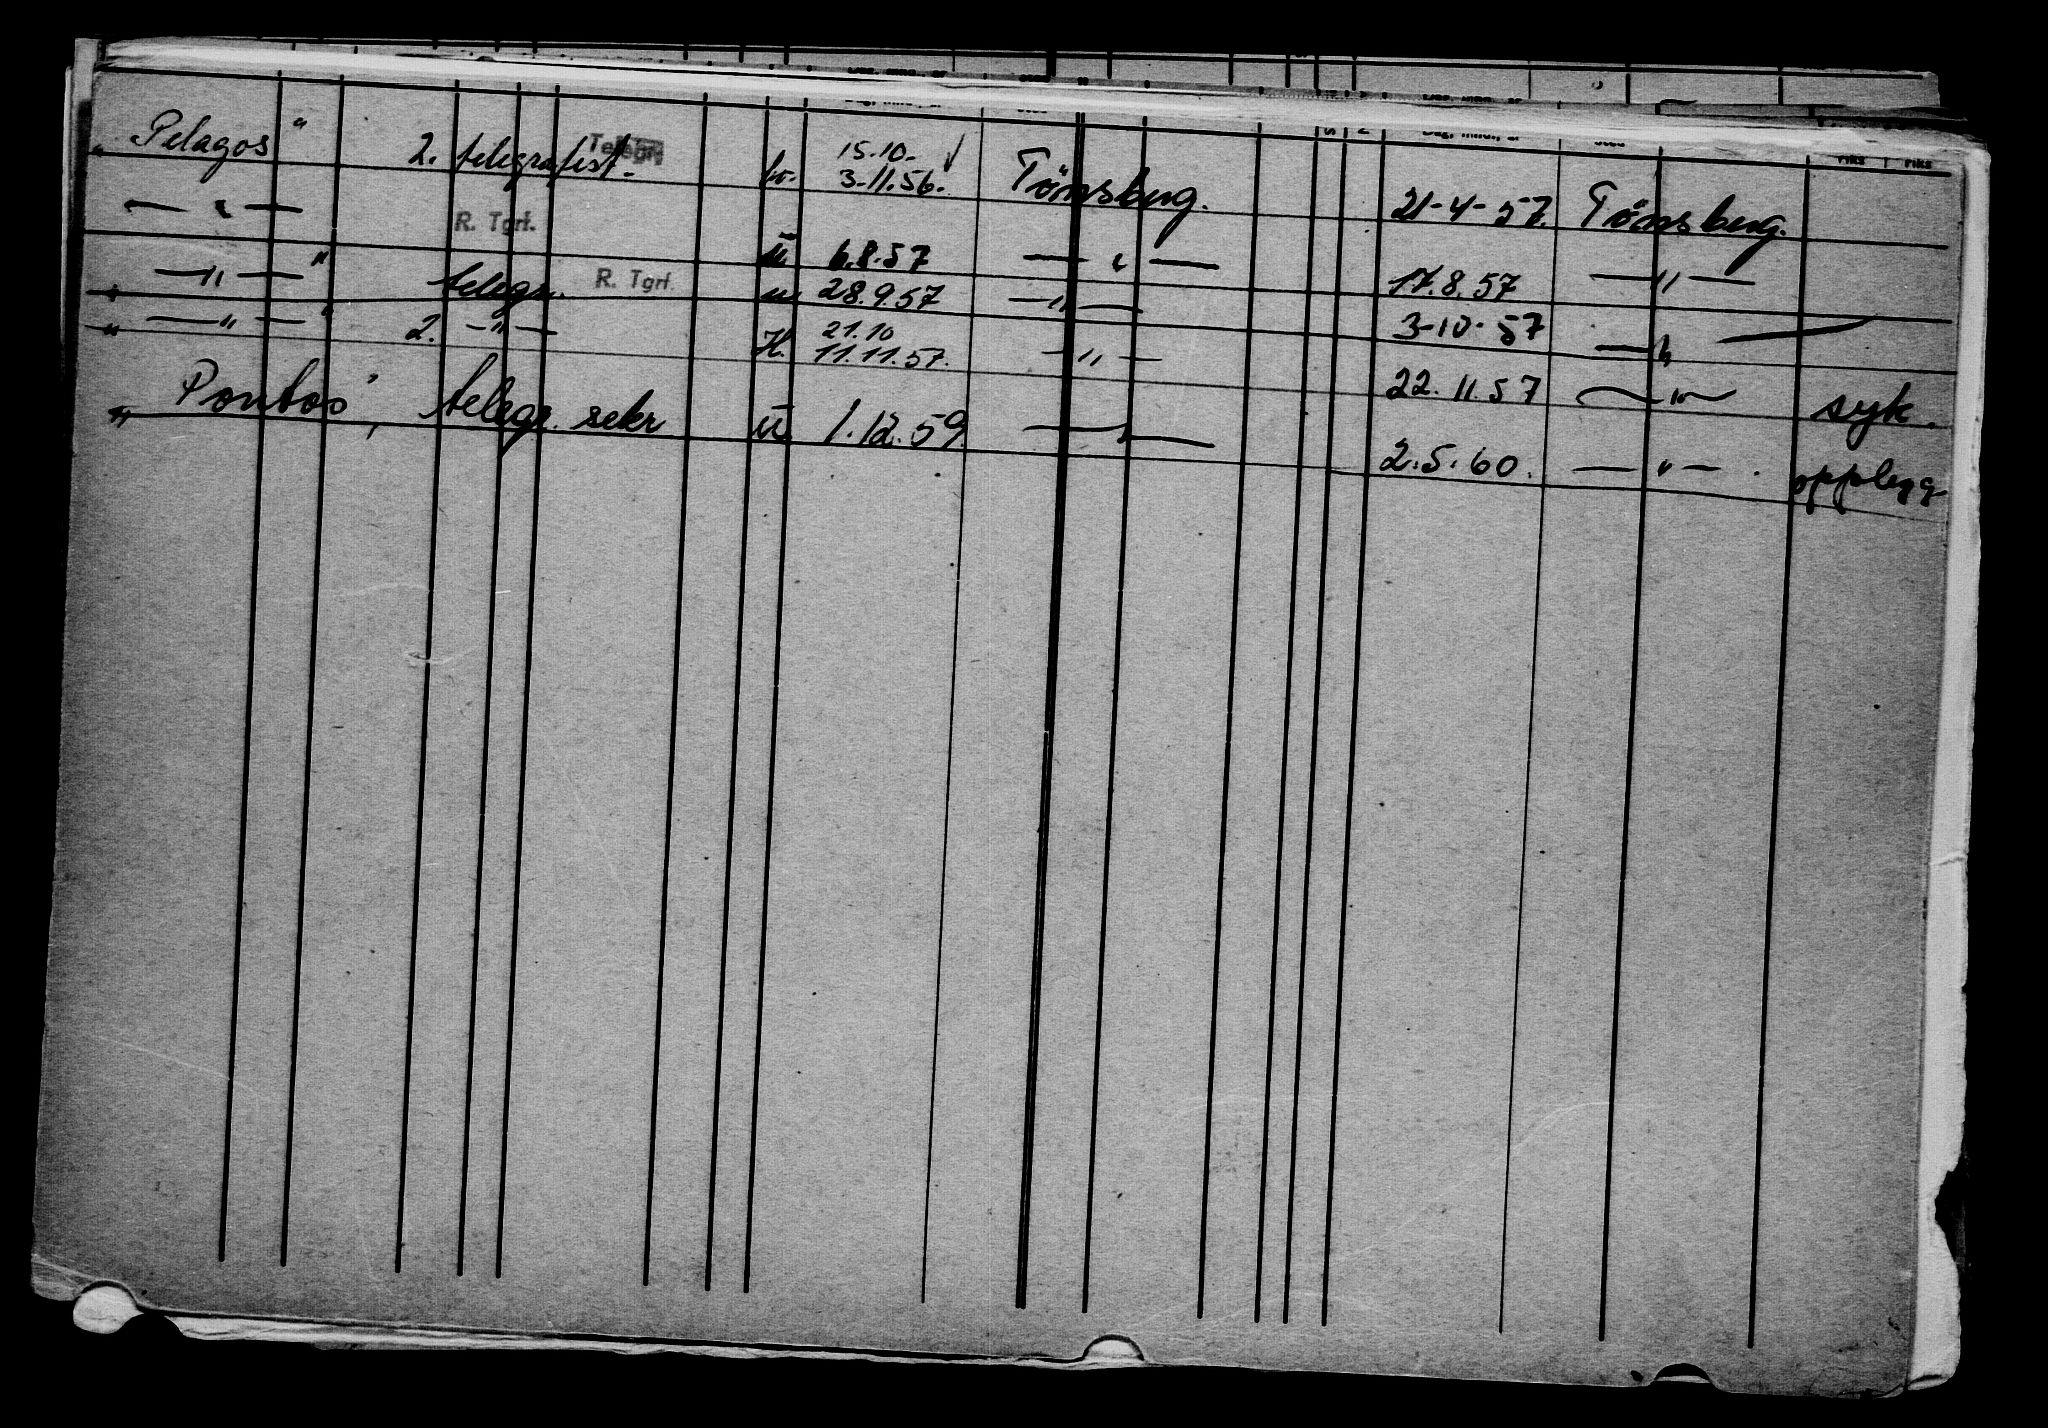 „Pelagos" 2. telegrafist. Telegr. 15.10- 3-11.56. Tönsberg. 21-4-57. Tönsberg.
— " — R. Tgrf. u. 6.8.57 — " — 17.8.57 — " —
„ — " — " telegr. R. Tgrf. u. 28.9.57 — " — 3-10-57 — " —
„ — " — " 2. — " — H. 21.10 11.11.57. — " — 22.11.57 — " — syk.
„Pontos", telegr. sekr u. 1.12.59. — " — 2.5.60. — " — . opplegg